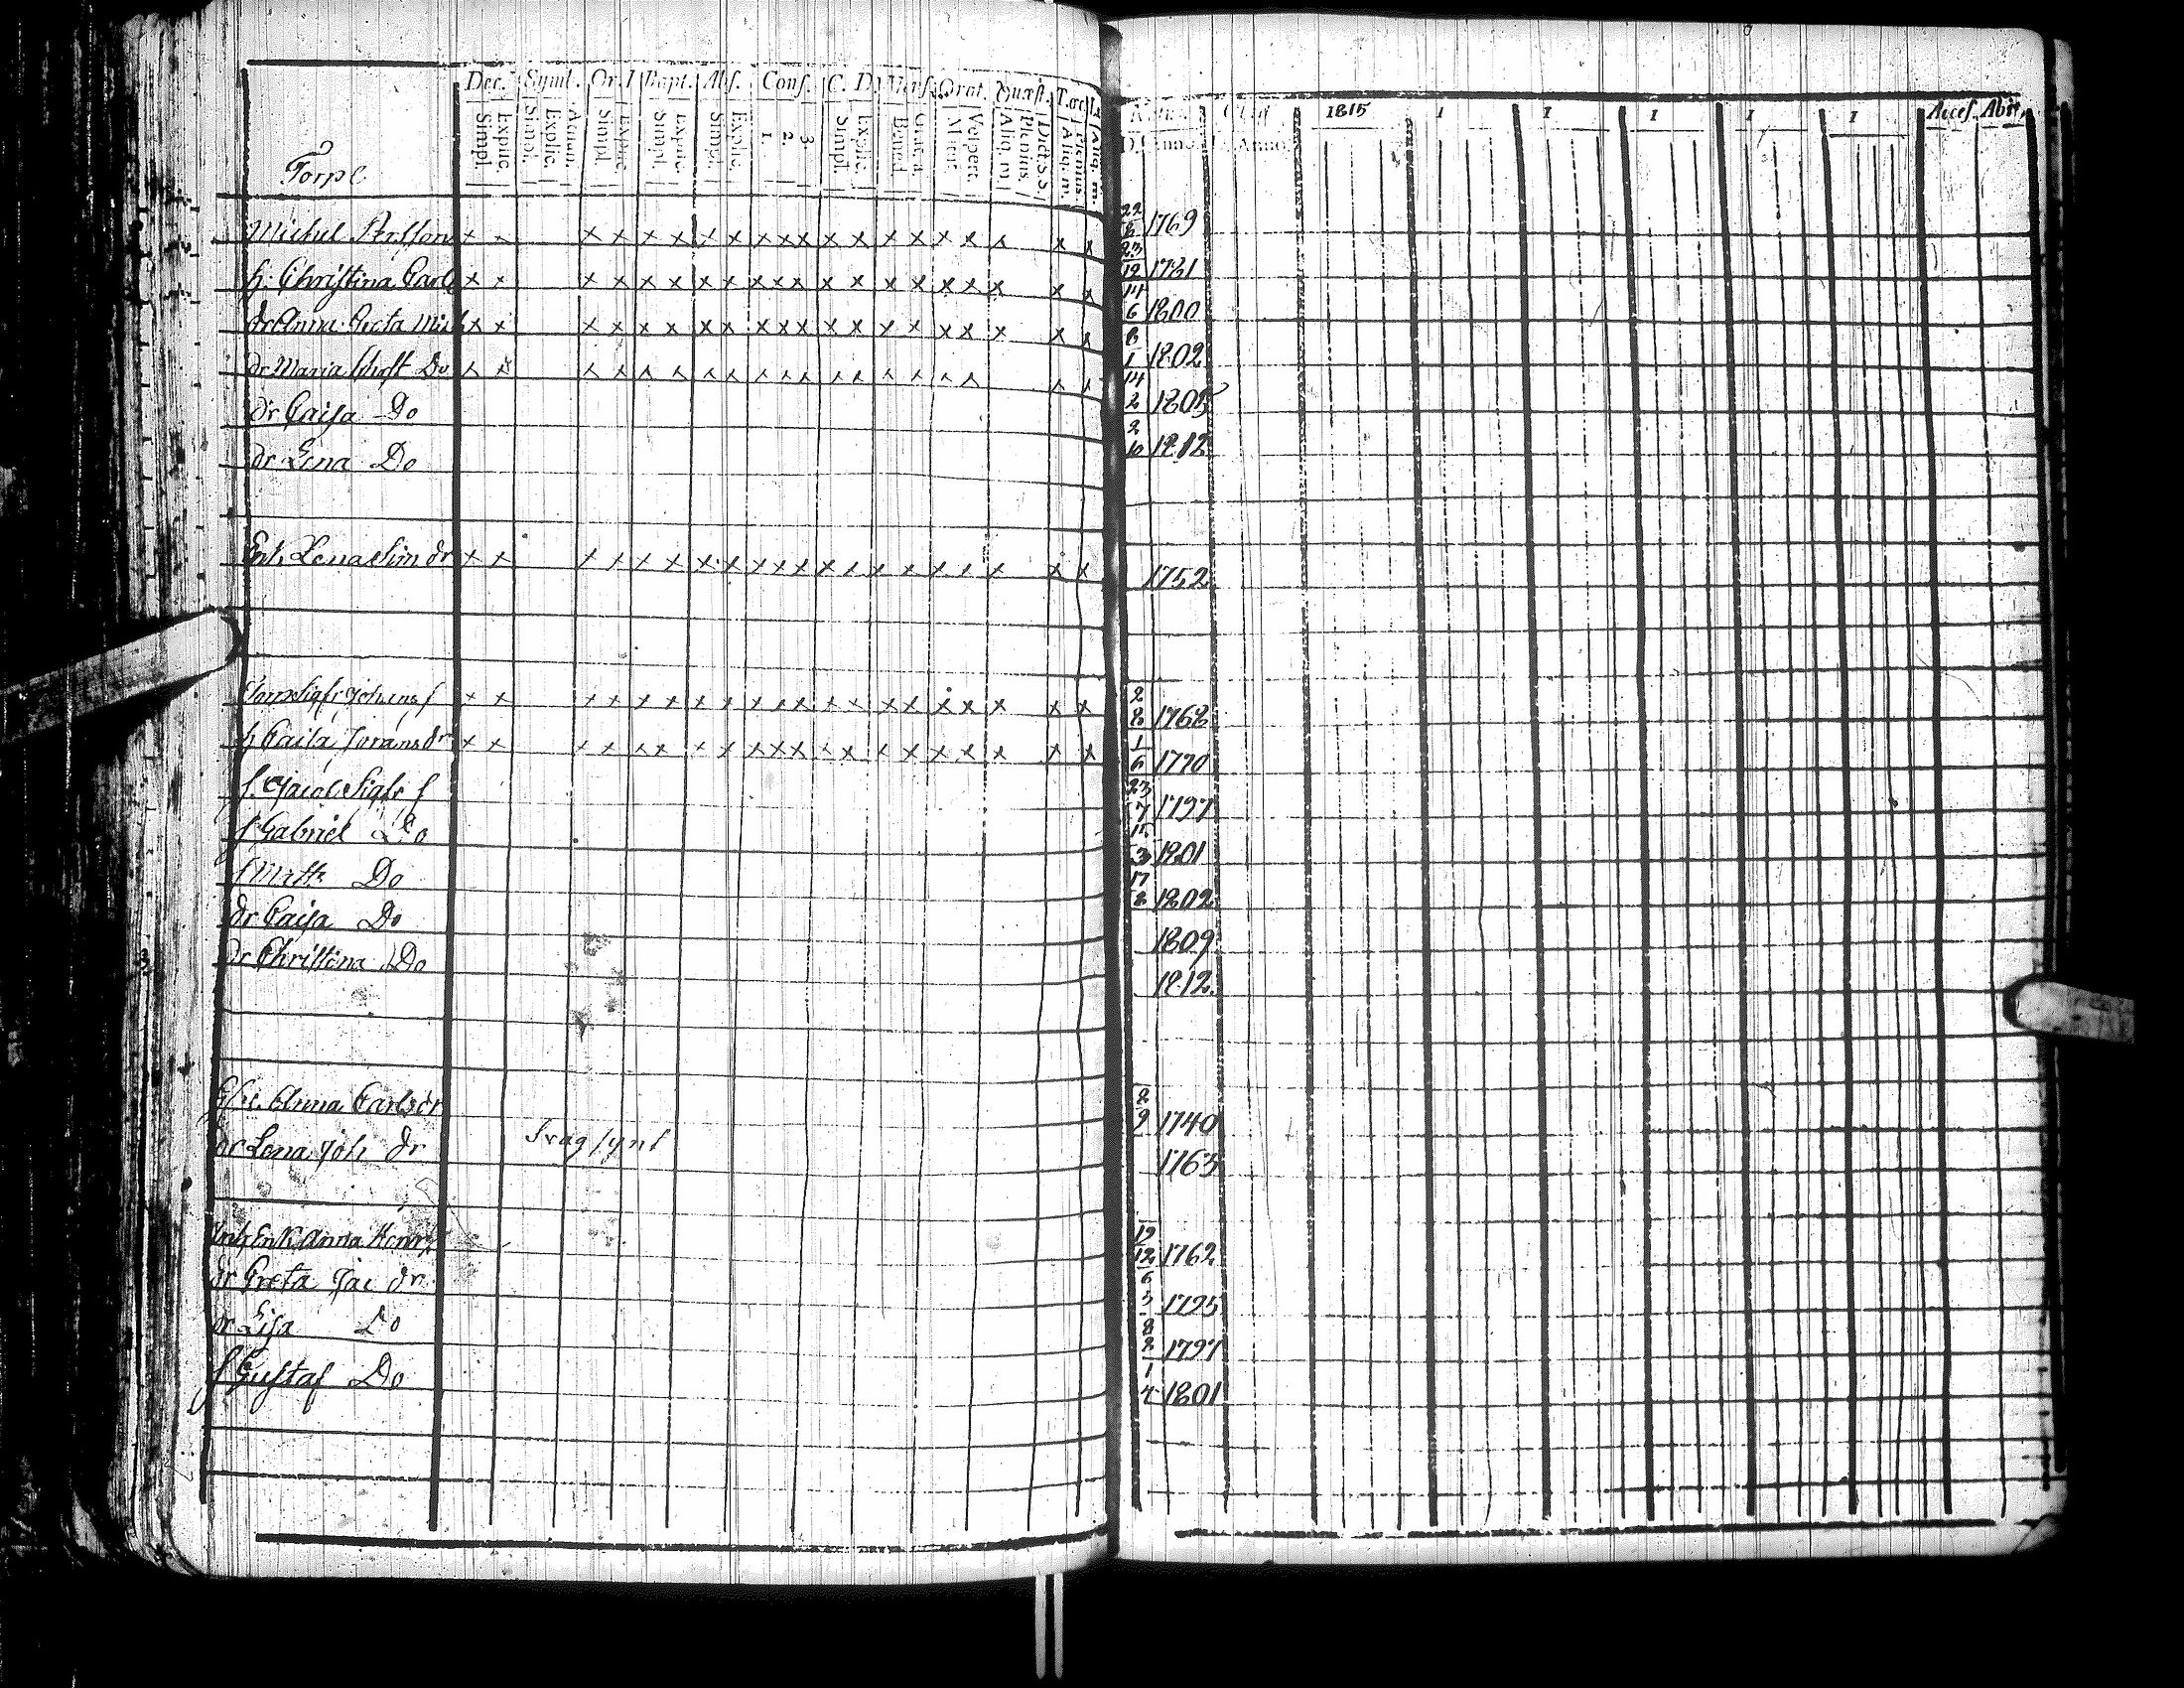 Dec. Symb. Or. D Bapt. Abs. Conf. C. D Mens. Orat. Quæst. T.œc
Simpl. Explic. Simpl. Explic. Simpl. Explic. Simpl. Explic. Simpl. Explic. 1. 2. 3. Simpl. Explic. Bened. Matut. Vespert. Aliq. m. Plenius. Dict. S.S. Aliq. m. Plenius Aliq. m.
Torp
1815 1 1 1 1 1 Acces. Abit.
Anno Anno
Michel 22 8 1769
h. Christina Carls 23 12 1781
dr Anna Greta Mich 14 6 1800
dr Maria Do 8 1 1802
dr Caisa Do 14 2 1805
dr Lena Do 2 10 1812
Lena Sim dr 1752
Torp Sigfr Johans s 2 8 1768
h Caisa Jorans dr 1 6 1770
s. Jacob Sigfr s 23 7 1797
s Gabriel Do 15 3 1801
s Matts Do 17 8 1802
dr Caisa Do 1809
dr Christina Do 1812.
Anna Carls dr 2 9 1740
dr Lena Joh dr 1763
Inh Enk. Anna Henr 19 12 1762
dr Greta Jac dr 6 3 1795
dr Lisa Do 8 2 1797
s Gustaf Do 1 1801